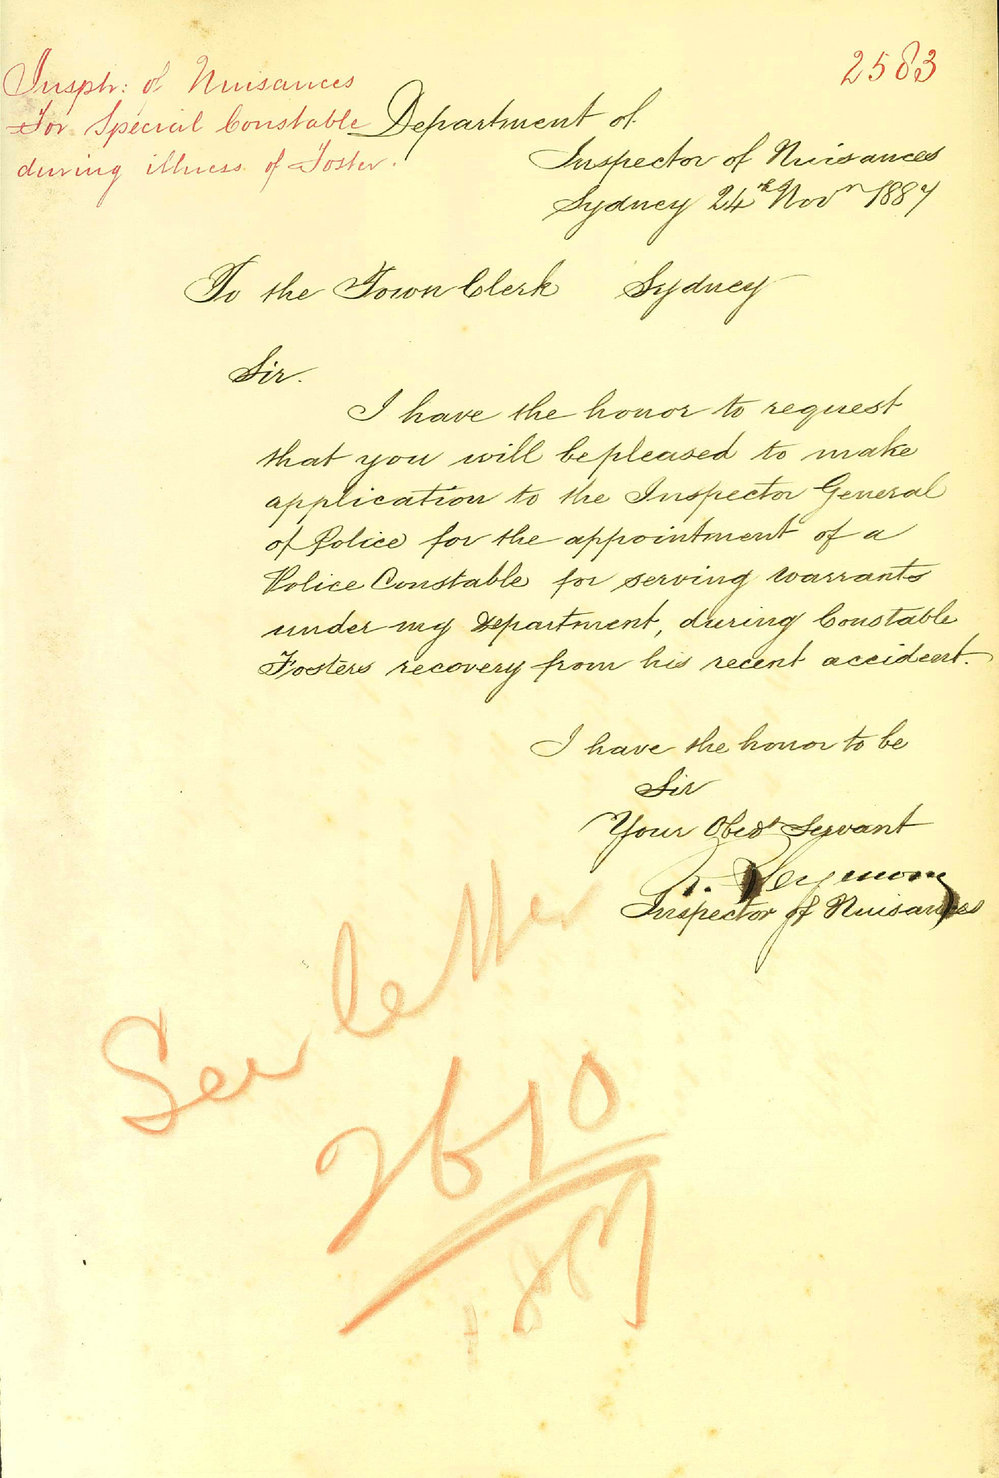 2583
Insptr: of Nuisances
For Special Constable
during illness of Foster.
Department of
Inspector of Nuisances
Sydney 24th Novr 1887
To the Town Clerk Sydney
Sir.
I have the honor to request
that you will be pleased to make
application to the Inspector General
of Police for the appointment of a
Police Constable for serving warrants
under my Department, during Constable
Fosters recovery from his recent accident.
I have the honor to be
Sir
Your Obedt Servant
Seymour
Inspector of Nuisances
See letter
2610
1887